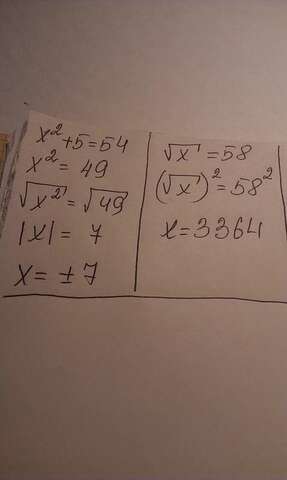 x² + 5 = 54
x² = 49
√x² = √49
|x| = 7
x = ± 7
√x = 58
(√x)² = 58²
x = 3364